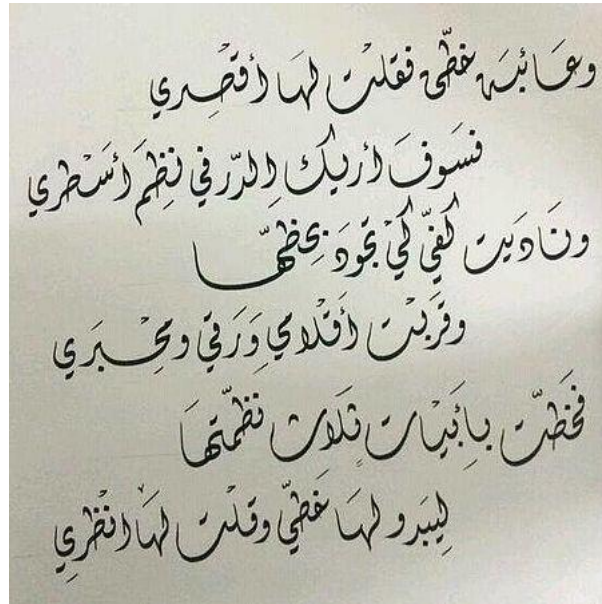 وعائبة خطي فقلت لها أقصري
فسوف أريك الدر في نظم أسطري
وناديت كفي كي تجود بخطها
وقربت أقلامي ورقي ومحبري
فخطت بأبيات ثلاث نظمتها
ليبدو لها خطي وقلت لها انظري